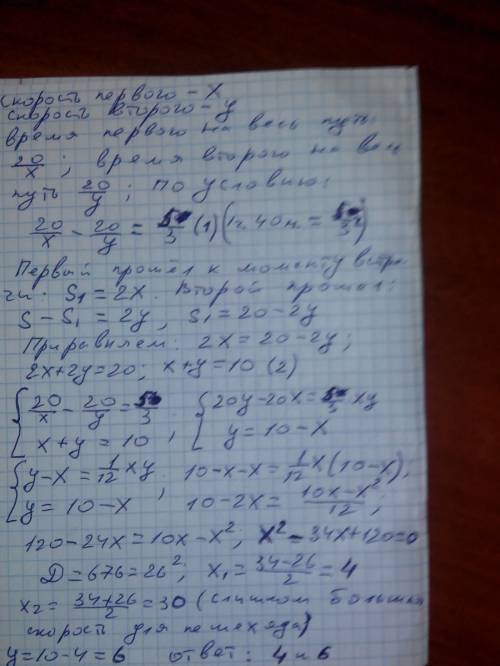 скорость первого - x
скорость второго - y
время первого на весь путь
20/x ; время второго на весь
путь 20/y ; по условию:
20/x - 20/y = 5/3 (1) (1ч. 40м. = 5/3)
Первый прошёл к моменту встре
чи: S₁ = 2x. Второй прошел:
S - S₁ = 2y, S₁ = 20 - 2y
Приравняем: 2x = 20 - 2y;
2x + 2y = 20; x + y = 10 (2)
{ 20/x - 20/y = 5/3 { 20y - 20x = 5/3 xy
x + y = 10 , y = 10 - x
{ y - x = 1/12 xy ; 10 - x - x = 1/12 x (10 - x);
y = 10 - x 10 - 2x = (10x - x²)/12 ;
120 - 24x = 10x - x²; x² - 34x + 120 = 0
D = 676 = 26²; x₁ = (34 - 26)/2 = 4
x₂ = (34 + 26)/2 = 30 (слишком большая
скорость для пешехода)
y = 10 - 4 = 6 ответ: 4 и 6